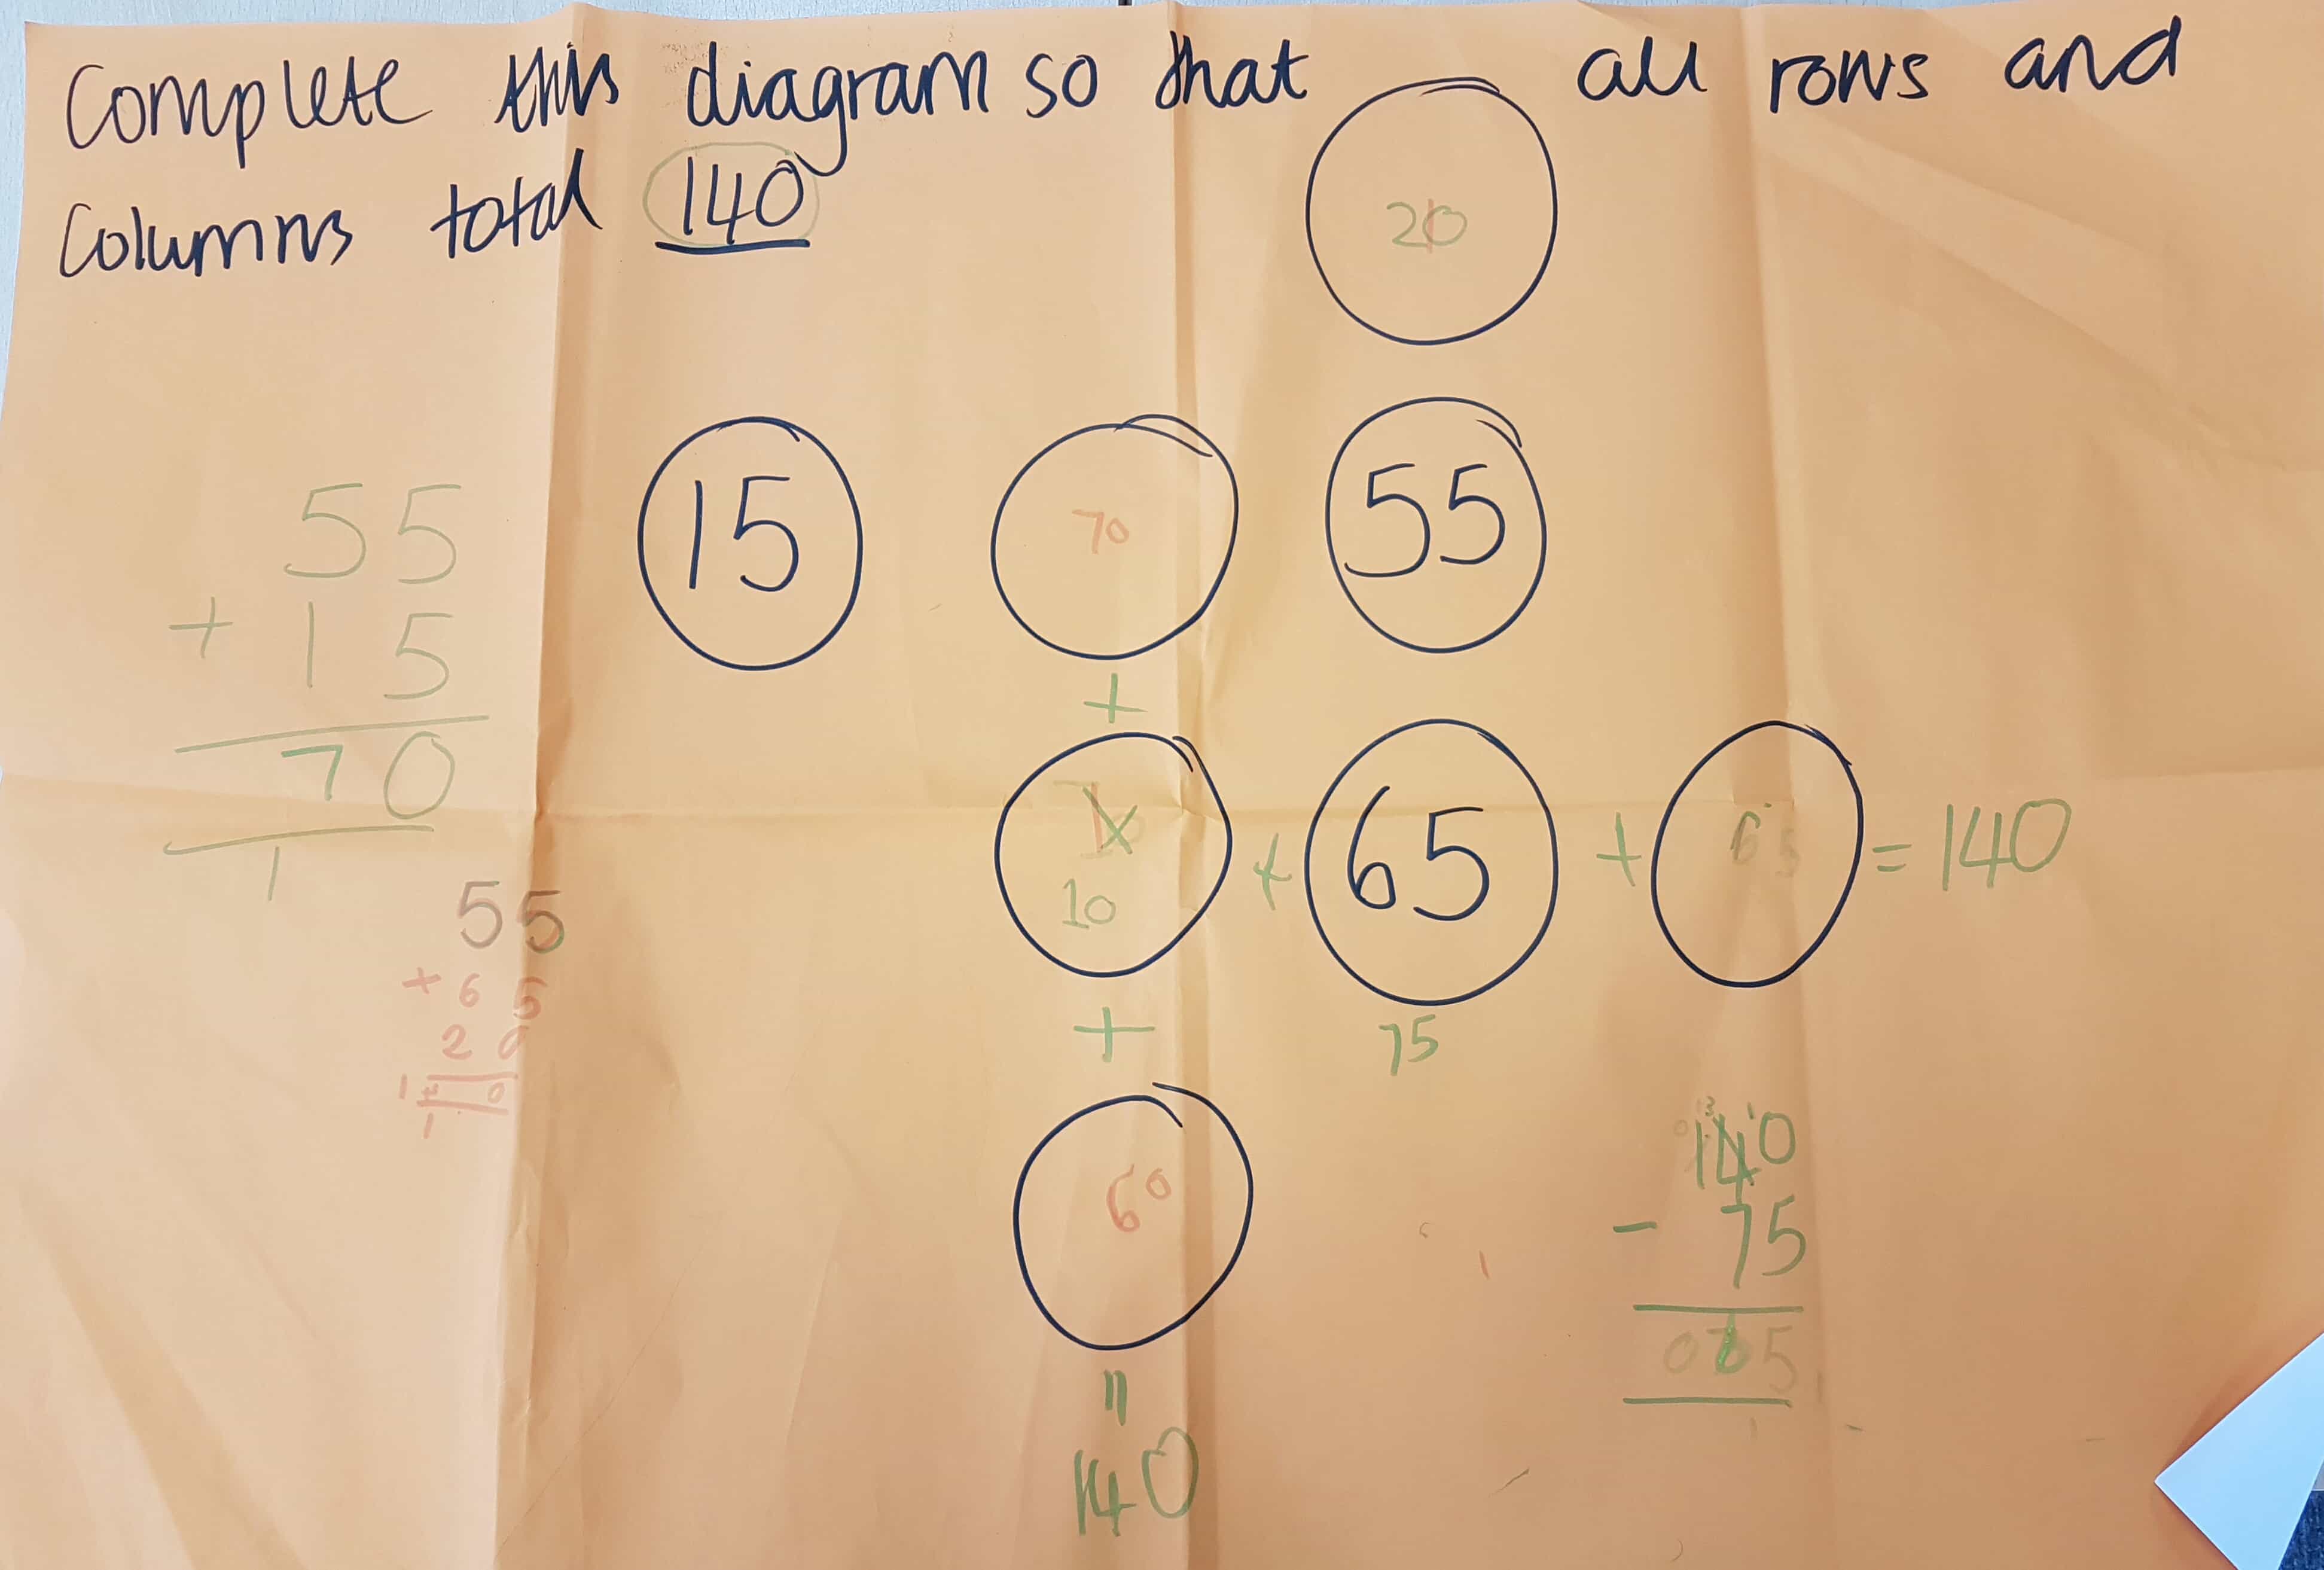 Complete this diagram so that all rows and
columns total 140
20
15 70 55
55
+ 15
70
1
+
10 + 65 + 65 = 140
55
+ 65
20
1 0
1
+ 75
60
140
- 75
065
=
140